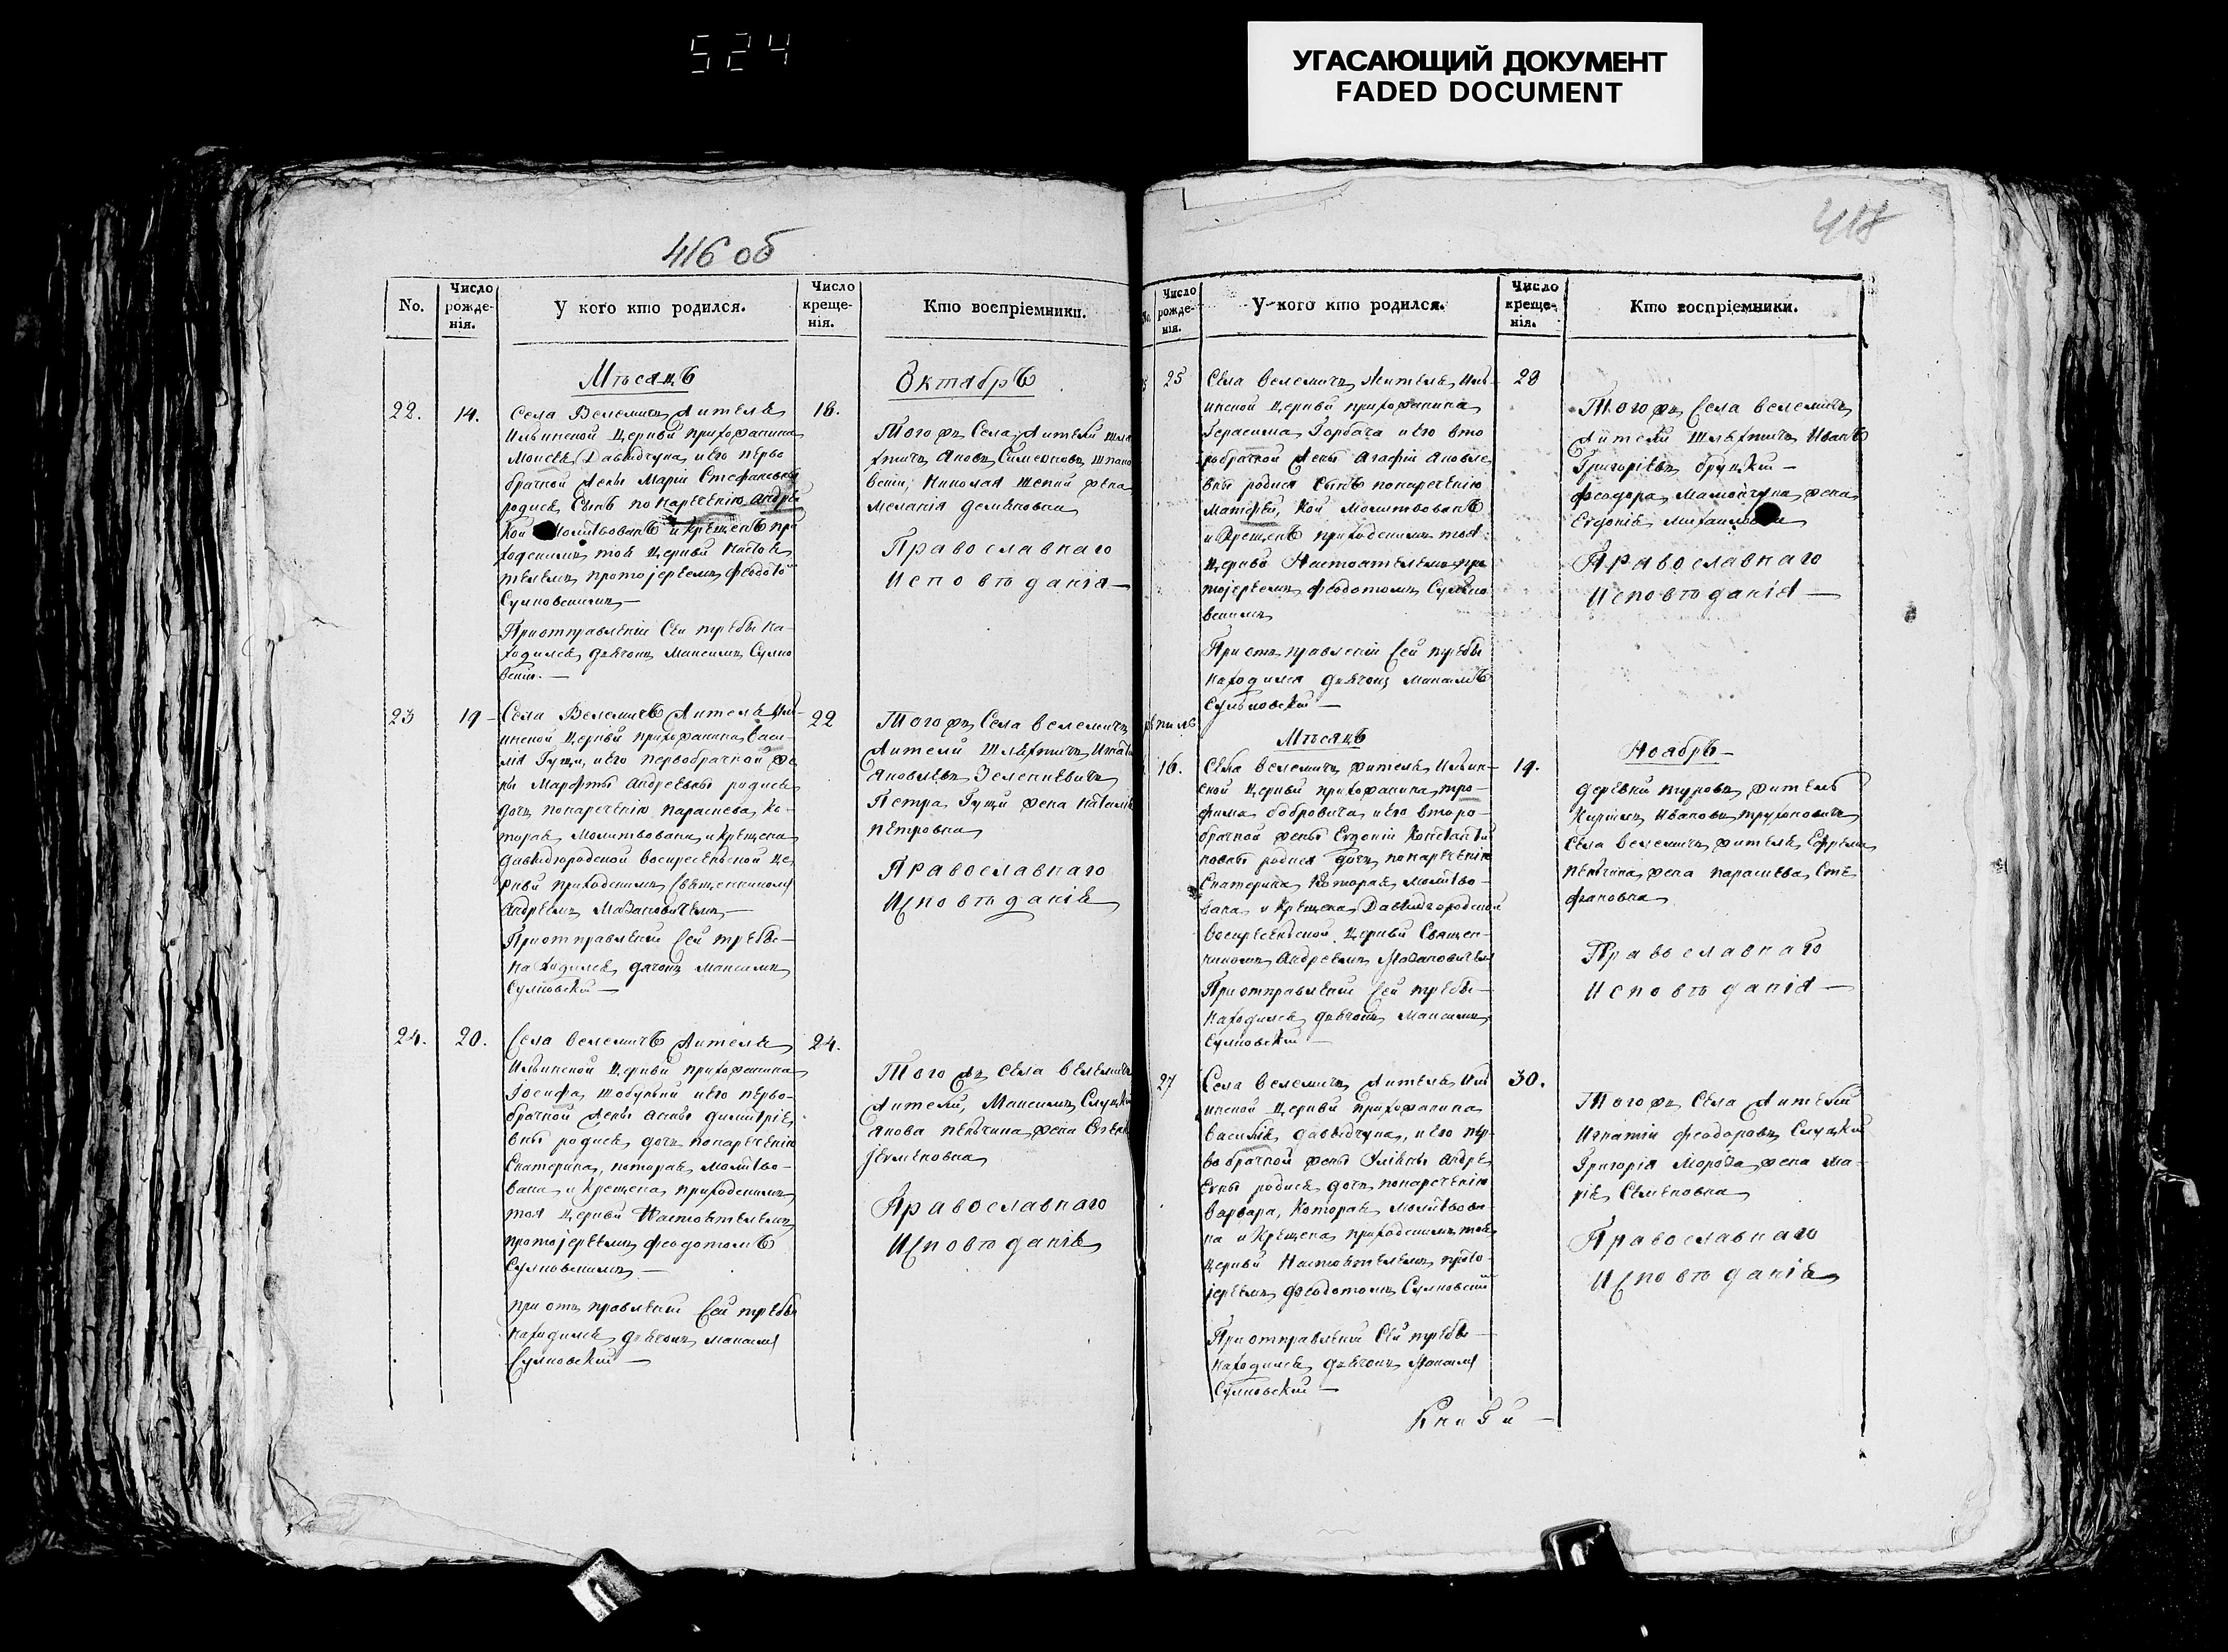 524
УГАСАЮЩИЙ ДОКУМЕНТ
FADED DOCUMENT
416 об
No.
Число рожде-нія.
У кого кто родился.
Число креще-нія.
Кто воспріемники.
Мѣсяцъ
Октябрь
22.
14.
Села Велемичъ Жителя
Ильинской Церкви прихожанина
Моисея Давидчука, и его перво
брачной жены Маріи Стефановой
родися Сынъ по нареченію Андрей
Кой Молитвованъ и Крещенъ при
ходскимъ тоя Церкви Настоя
телемъ протоіереемъ Феодото
Сулковскимъ —
При отправленіи Сей требы на-
ходился дьячокъ Максимъ Сулко
вскій. —
18.
Того жъ Села Жители Шля
хтичъ Яковъ Симеоновъ
вскій, Николая жена
Меланія Демяновна
Православнаго
Исповѣданія —
23
19
Села Велемичъ Житель Иль-
инской Церкви прихожанина Васи-
лія Гущи, и его первобрачной же
ны Марфты Андреевны родися
дочь по нареченію Параскева, Ко-
торая Молитвована и Крещена
Давидгородской Воскресенской Це
ркви приходскимъ Священникомъ
Андреемъ Мазановичемъ —
При отправленіи Сей требы —
находился дячокъ Максимъ
Сулковскій —
22
Того жъ Села Велемичъ
Жители Шляхтичъ Игнатій
Яковлевъ Зеленкевичъ
Петра Гущи жена Наталія
Петровна
Православнаго
Исповѣданія
24.
20.
Села Велемичъ Жителя
Ильинской Церкви прихожанина
Іосифа и его перво-
брачной жены Димитріе
вны родися дочь по нареченію
Екатерина, которая Молитво-
вана и Крещена приходскимъ
тоя Церкви Настоятелемъ
протоіереемъ Феодотомъ
Сулковскимъ —
при отправленіи Сей требы
находился дьячокъ Максимъ
Сулковскій —
24.
Того жъ Села Велемичъ
Жители, Максимъ Слуцкій
Якова жена
Православнаго
Исповѣданія
417
No.
Число рожде-нія.
У кого кто родился.
Число креще-нія.
Кто воспріемники.
25
Села Велемичъ Житель Иль-
инской Церкви прихожанина
Герасима Горбача и его вто
робрачной жены Агафіи Яковле
вны родися Сынъ по нареченію
Матфей, Кой Молитвованъ
и Крещенъ приходскимъ тоя
Церкви Настоятелемъ про
тоіереемъ Феодотомъ Сулко
вскимъ
При отправленіи Сей требы
находился дьячокъ Максимъ
Сулковскій —
28
Того жъ Села Велемичъ
Жители Шляхтичъ Иванъ
Григоріевъ Бруцкій —
Феодора Мамойчука жена
Евдокія Михайловна
Православнаго
Исповѣданія —
Мѣсяцъ
Ноябрь —
16.
Села Велемичъ Жителя Ильин-
ской Церкви прихожанина Тро-
фима Бобровича и его второ-
брачной жены Евдокіи Константи
новны родися дочь по нареченію
Екатерина Которая Молитво-
вана и Крещена Давидгородской
Воскресенской Церкви Священ-
никомъ Андреемъ Мазановичемъ
При отправленіи Сей требы —
находился дьячокъ Максимъ
Сулковскій —
19.
деревни Туровъ житель
Ивановъ Трухоновичъ
Села Велемичъ жителя Ефрема
жена Параскева Сте
фановна
Православнаго
Исповѣданія —
27
Села Велемичъ Жителя Иль
инской Церкви прихожанина
Василія Давидчука, и его пер-
вобрачной жены Андре
евны родися дочь по нареченію
Варвара, Которая Молитвова
на и Крещена приходскимъ тоя
Церкви Настоятелемъ прото-
іереемъ Феодотомъ Сулковскій
При отправленіи Сей требы —
находился дьячокъ Максимъ
Сулковскій —
30.
Того жъ Села Жители
Игнатій Феодоровъ Слуцкій
Григорія Мороза жена Ма-
рія Семеновна
Православнаго
Исповѣданія
Книги —